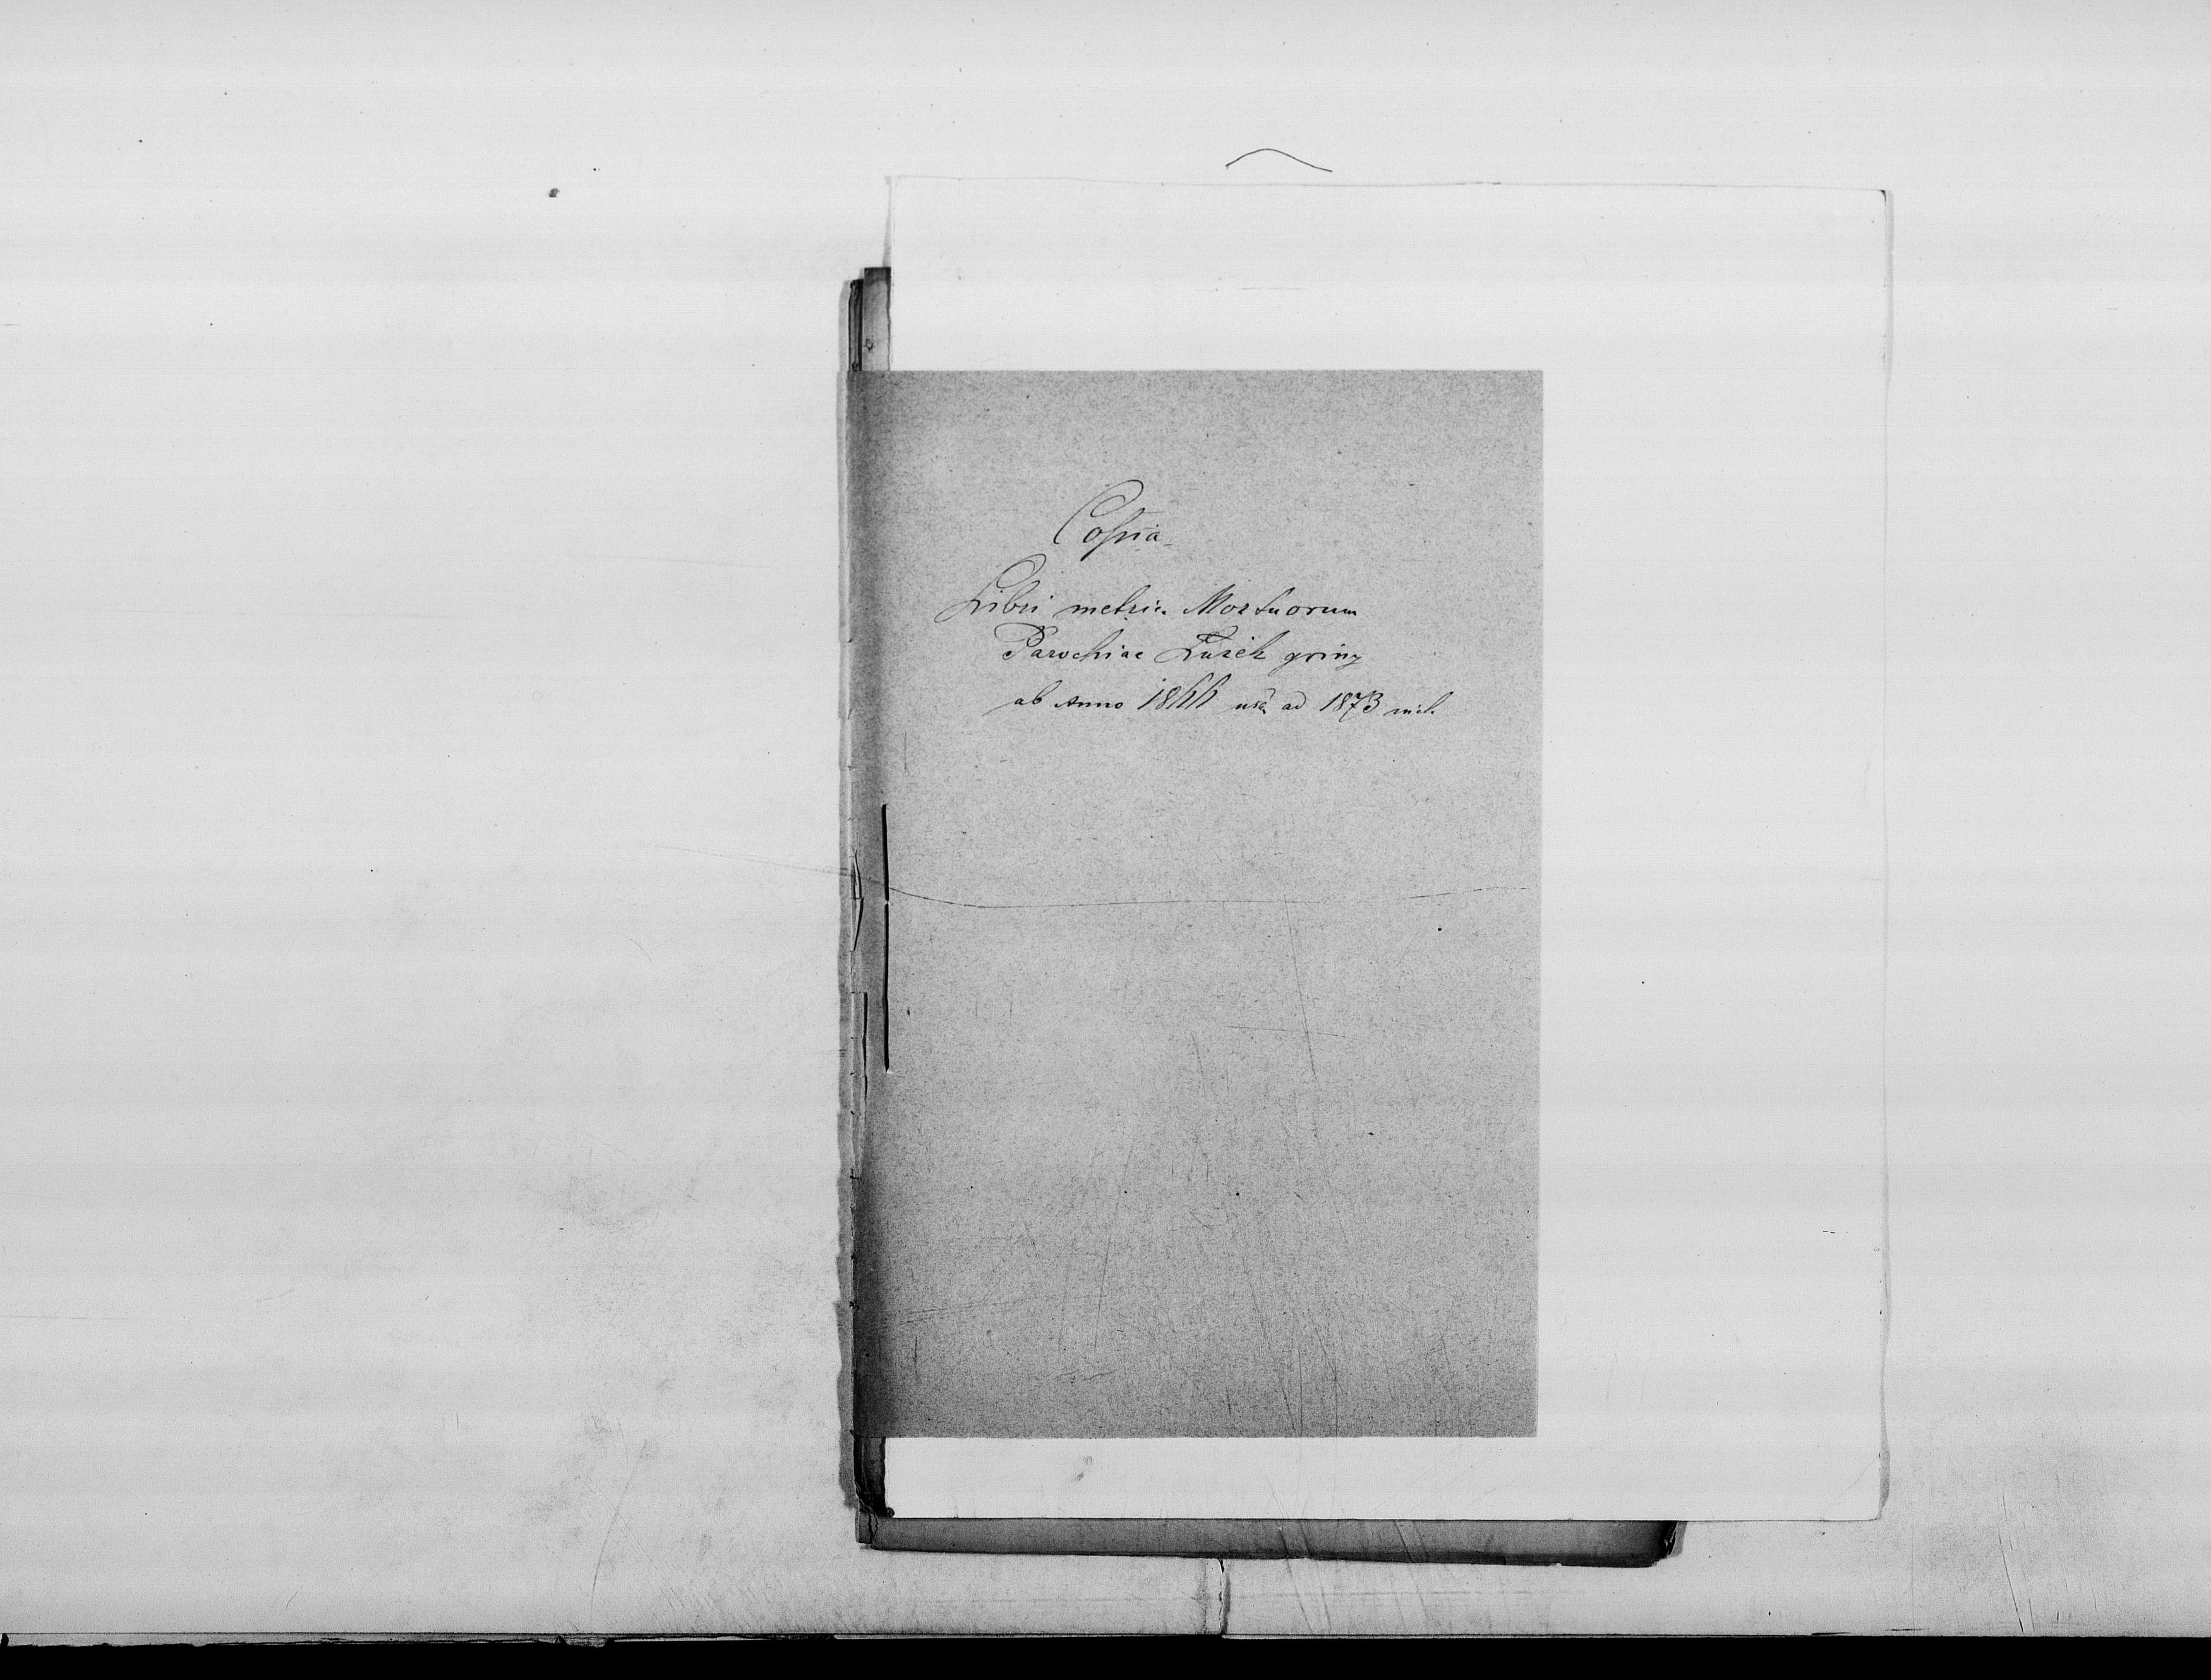 Copia
Libri metric. Mortuorum
Parochiae Łużek górny
ab Anno 1866 usq ad 1873 incl.